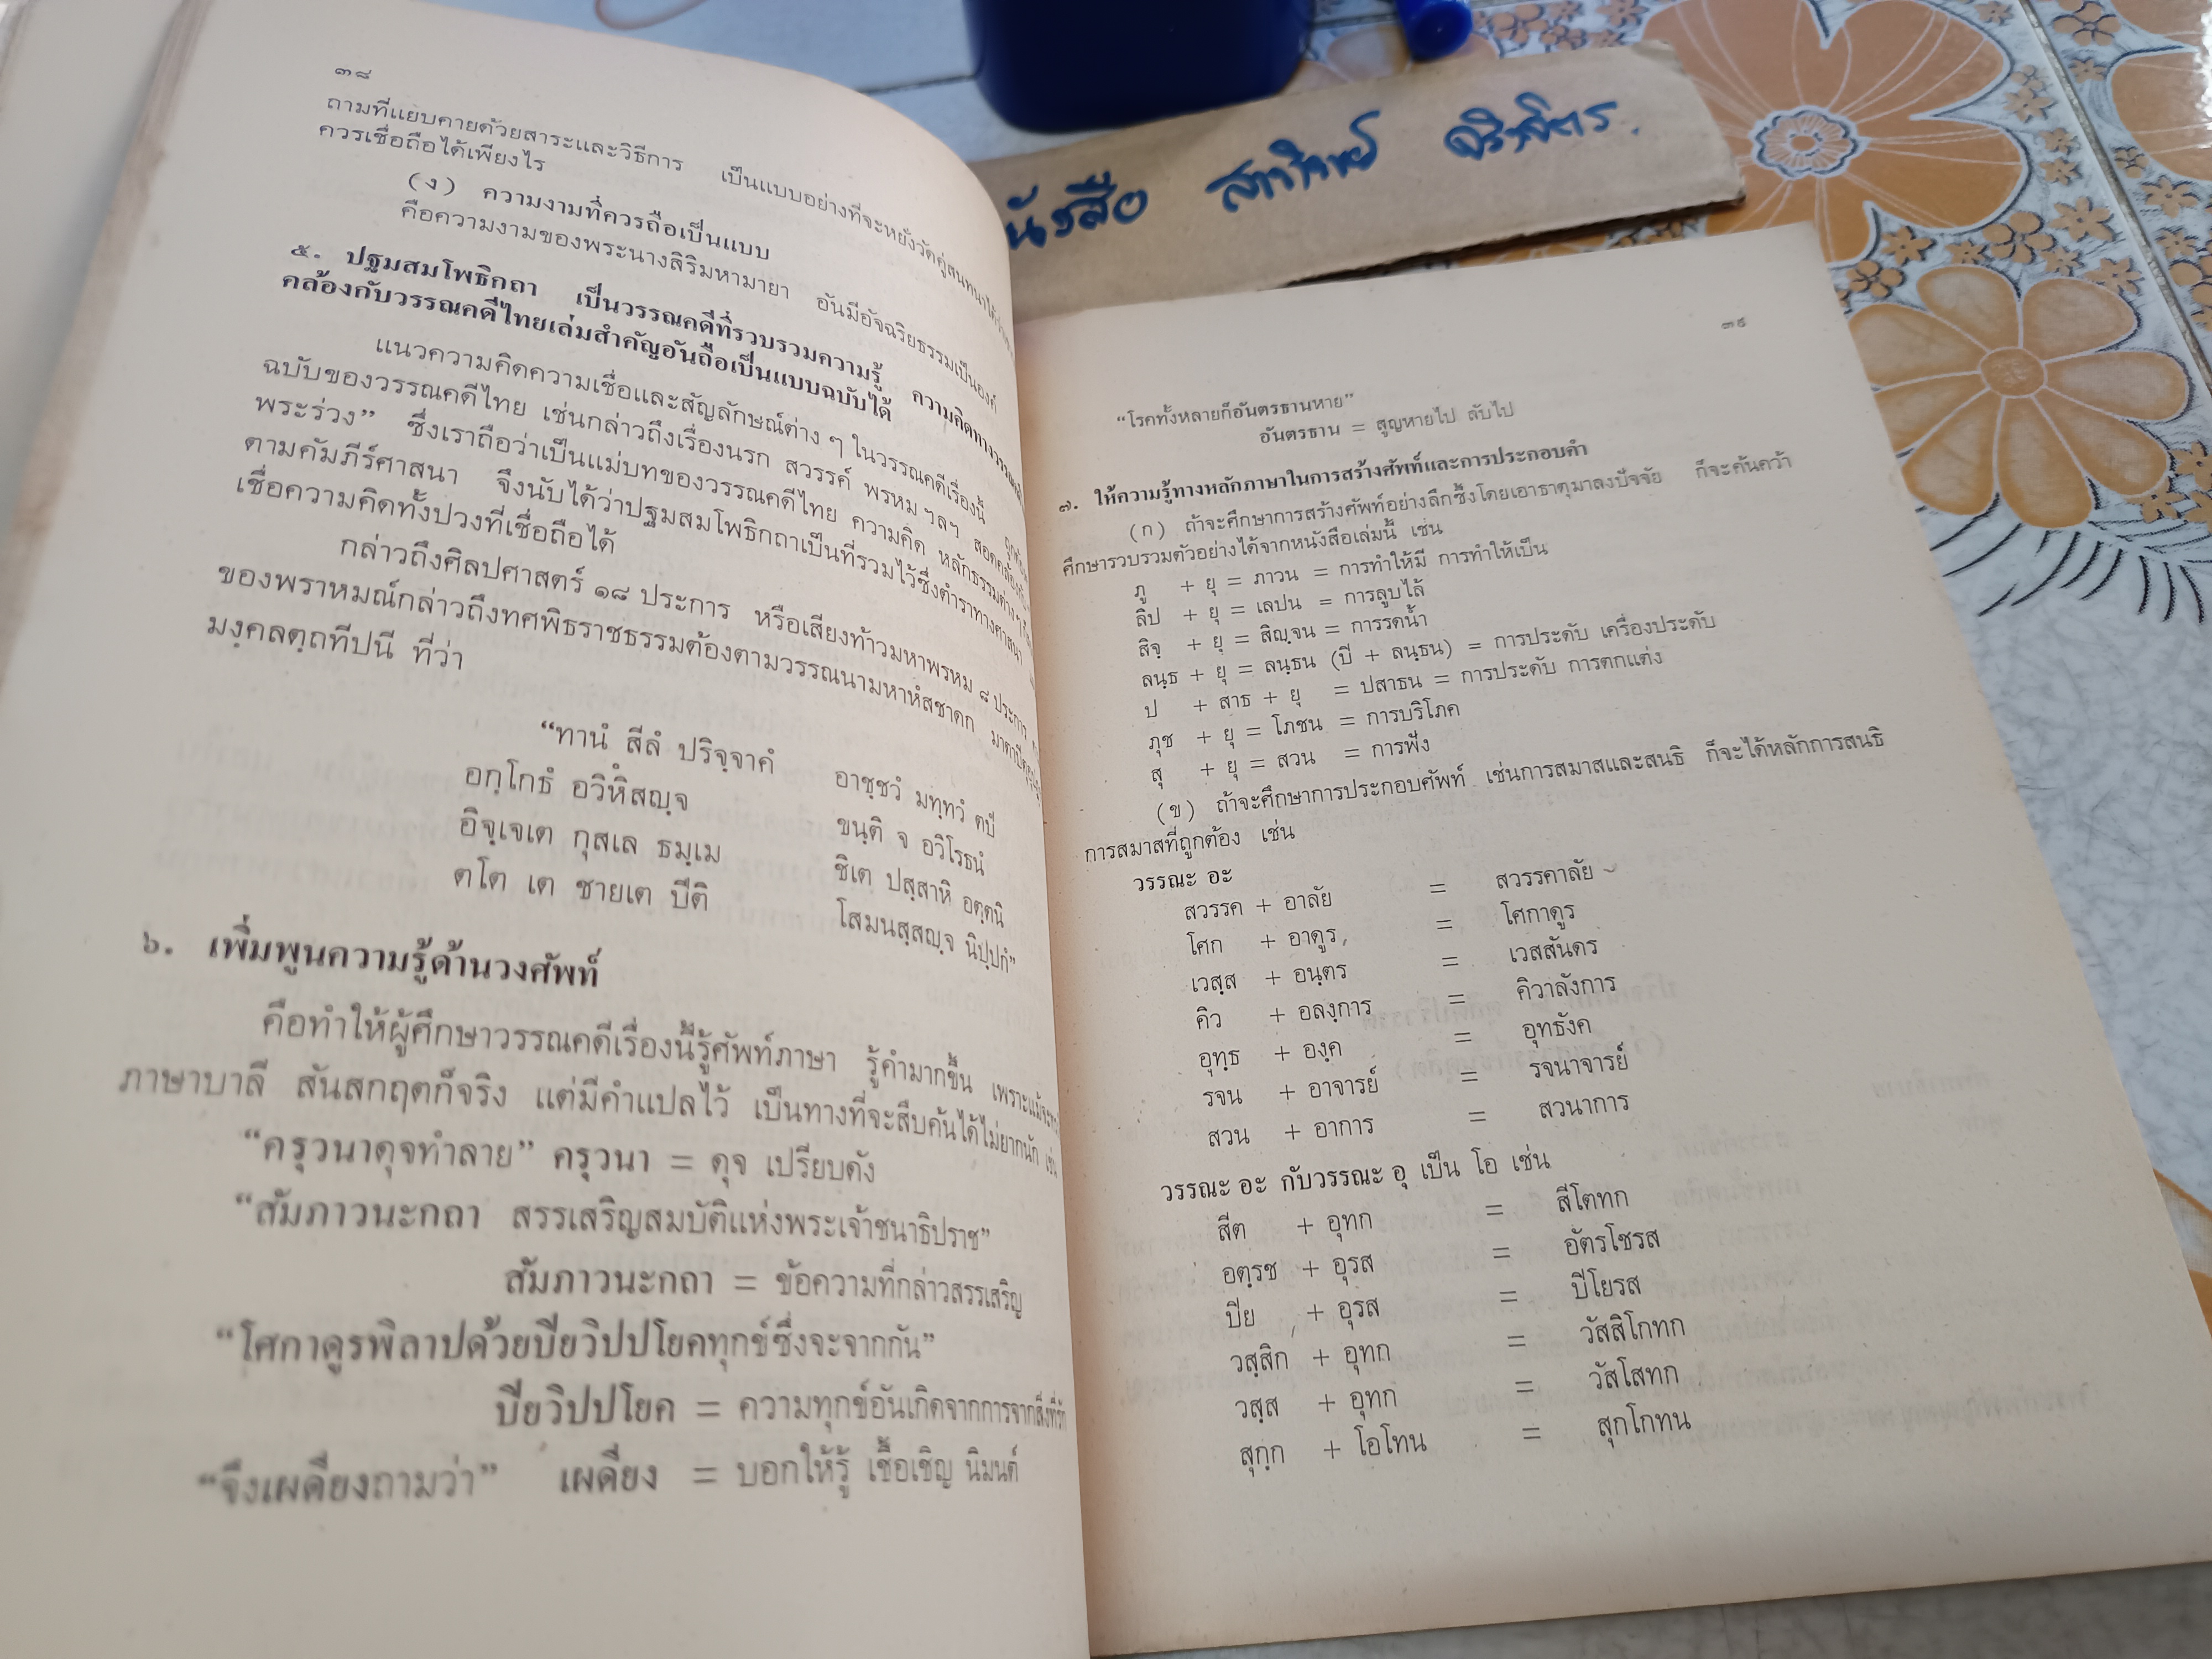 ๓๘
ถามที่แยบคายด้วยสาระและวิธีการ เป็นแบบอย่างที่จะหยั่งวัดคู่สนทนาได้
ควรเชื่อถือได้เพียงไร
(ง) ความงามที่ควรถือเป็นแบบ
คือความงามของพระนางสิริมหามายา อันมีอัจฉริยธรรมเป็นองค์
๕. ปฐมสมโพธิกถา เป็นวรรณคดีที่รวบรวมความรู้ ความคิดทาง
คล้องกับวรรณคดีไทยเล่มสำคัญอันถือเป็นแบบฉบับได้
แนวความคิดความเชื่อและสัญลักษณ์ต่าง ๆ ในวรรณคดีเรื่องนี้
ฉบับของวรรณคดีไทย เช่นกล่าวถึงเรื่องนรก สวรรค์ พรหม ฯลฯ สอดคล้องกับ
พระร่วง” ซึ่งเราถือว่าเป็นแม่บทของวรรณคดีไทย ความคิด หลักธรรมต่าง ๆ
ตามคัมภีร์ศาสนา จึงนับได้ว่าปฐมสมโพธิกถาเป็นที่รวมไว้ซึ่งตำราทางศาสนา
เชื่อความคิดทั้งปวงที่เชื่อถือได้
กล่าวถึงศิลปศาสตร์ ๑๘ ประการ หรือเสียงท้าวมหาพรหม ๘ ประการ
ของพราหมณ์กล่าวถึงทศพิธราชธรรมต้องตามวรรณนามหาหํสชาดก
มงฺคลตฺถทีปนี ที่ว่า
“ทานํ สีลํ ปริจฺจาคํ อาชฺชวํ มทฺทวํ ตปํ
อกฺโกธํ อวิหึสญฺจ ขนฺติ จ อวิโรธนํ
อิจฺเจเต กุสเล ธมฺเม ฐิเต ปสฺสาหิ อตฺตนิ
ตโต เต ชายเต ปีติ โสมนสฺสญฺจ นิปฺปกํ”
๖. เพิ่มพูนความรู้ด้านวงศัพท์
คือทำให้ผู้ศึกษาวรรณคดีเรื่องนี้รู้ศัพท์ภาษา รู้คำมากขึ้น เพราะแม้จะ
ภาษาบาลี สันสกฤตก็จริง แต่มีคำแปลไว้ เป็นทางที่จะสืบค้นได้ไม่ยากนัก เช่น
“ครุวนาดุจทำลาย” ครุวนา = ดุจ เปรียบดัง
“สัมภาวนะกถา สรรเสริญสมบัติแห่งพระเจ้าชนาธิปราช”
สัมภาวนะกถา = ข้อความที่กล่าวสรรเสริญ
“โศกาดูรพิลาปด้วยปิยวิปปโยคทุกข์ซึ่งจะจากกัน”
ปิยวิปปโยค = ความทุกข์อันเกิดจากการจากสิ่งที่รัก
“จึงเผดียงถามว่า” เผดียง = บอกให้รู้ เชื้อเชิญ นิมนต์
หนังสือ
๓๙
“โรคทั้งหลายก็อันตรธานหาย”
อันตรธาน = สูญหายไป ลับไป
๗. ให้ความรู้ทางหลักภาษาในการสร้างศัพท์และการประกอบคำ
(ก) ถ้าจะศึกษาการสร้างศัพท์อย่างลึกซึ้งโดยเอาธาตุมาลงปัจจัย ก็จะค้นคว้า
ศึกษารวบรวมตัวอย่างได้จากหนังสือเล่มนี้ เช่น
ภู + ยุ = ภาวน = การทำให้มี การทำให้เป็น
ลิป + ยุ = เลปน = การลูบไล้
สิจฺ + ยุ = สิญฺจน = การรดน้ำ
ลนฺธ + ยุ = ลนฺธน (ปิ + ลนฺธน) = การประดับ เครื่องประดับ
ป + สาธ + ยุ = ปสาธน = การประดับ การตกแต่ง
ภุช + ยุ = โภชน = การบริโภค
สุ + ยุ = สวน = การฟัง
(ข) ถ้าจะศึกษาการประกอบศัพท์ เช่นการสมาสและสนธิ ก็จะได้หลักการสนธิ
การสมาสที่ถูกต้อง เช่น
วรรณะ อะ
สวรรค + อาลัย = สวรรคาลัย
โศก + อาดูร = โศกาดูร
เวสฺส + อนฺตร = เวสสันดร
คิว + อลงฺการ = คิวาลังการ
อุทฺธ + องฺค = อุทธังค
รจน + อาจารย์ = รจนาจารย์
สวน + อาการ = สวนาการ
วรรณะ อะ กับวรรณะ อุ เป็น โอ เช่น
สีต + อุทก = สีโตทก
อตฺรช + อุรส = อัตรโชรส
ปิย + อุรส = ปิโยรส
วสฺสิก + อุทก = วัสสิโกทก
วสฺส + อุทก = วัสโสทก
สุกฺก + โอโทน = สุกโกทน